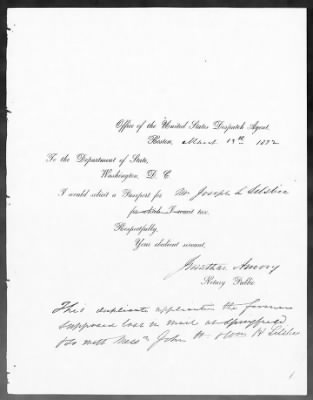 Office of the United States Despatch Agent,
Boston, March 19th 1872
To the Department of State,
Washington, D. C.
I would solicit a Passport for Mr Joseph L
for which I remit tax.
Respectfully,
Your obedient servant,
Jonathan Amory
Notary Public.
This duplicate application the former
supposed lost in mail as
also with Messrs John H